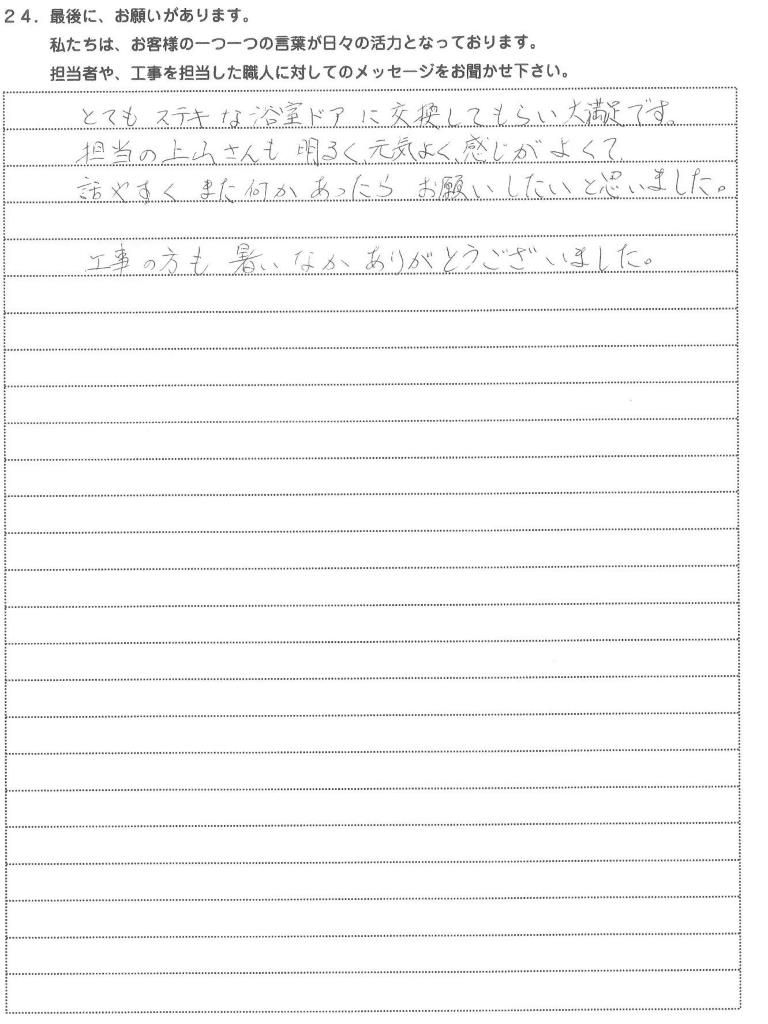 ２４．最後に、お願いがあります。
私たちは、お客様の一つ一つの言葉が日々の活力となっております。
担当者や、工事を担当した職人に対してのメッセージをお聞かせ下さい。
とても ステキな浴室ドアに交換してもらい大満足です。
担当の上山さんも 明るく、元気よく、感じがよくて、
話やすく また何か あったら お願いしたいと思いました。
工事の方も 暑いなか ありがとうございました。